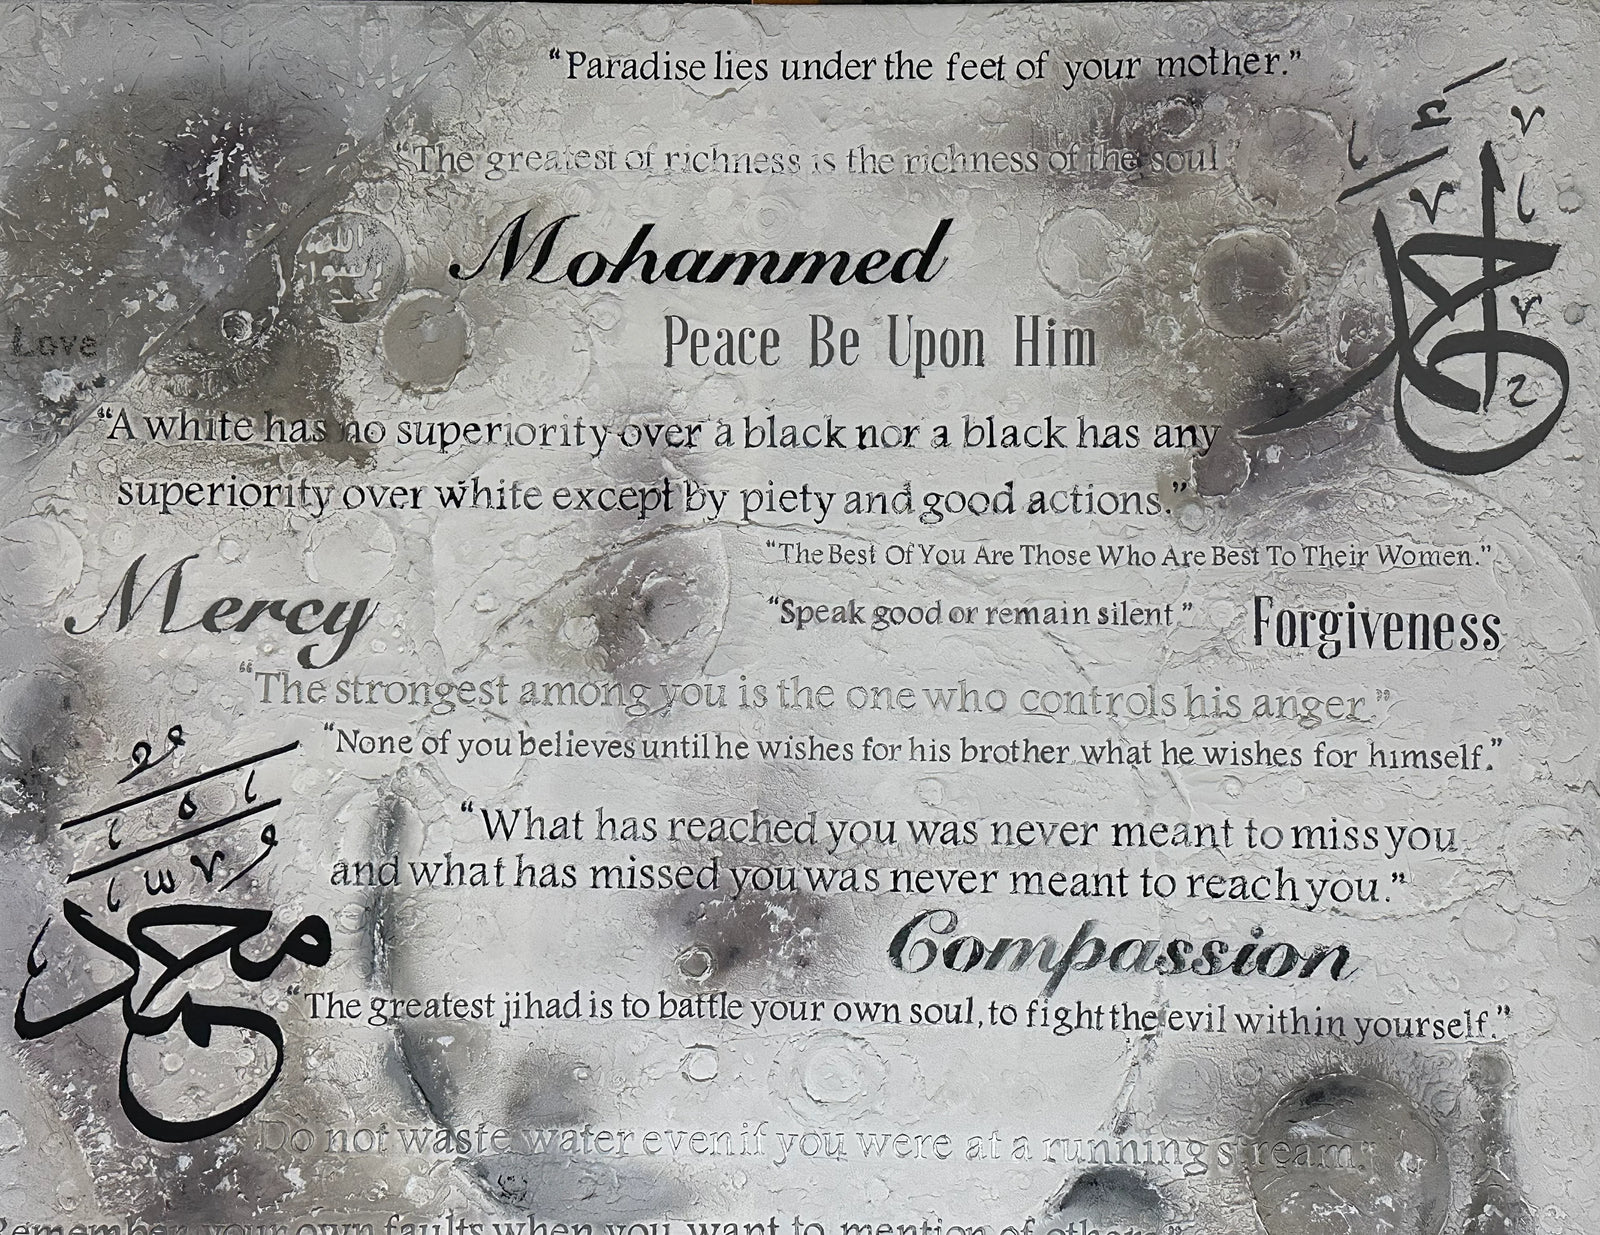 “Paradise lies under the feet of your mother.”
“The greatest of richness is the richness of the soul.”
الله
رسول
محمد
Mohammed
Peace Be Upon Him
Love
“A white has no superiority over a black nor a black has any
superiority over white except by piety and good actions.”
“The Best Of You Are Those Who Are Best To Their Women.”
Mercy
“Speak good or remain silent.”
Forgiveness
“The strongest among you is the one who controls his anger.”
“None of you believes until he wishes for his brother what he wishes for himself.”
“What has reached you was never meant to miss you
and what has missed you was never meant to reach you.”
محمد
Compassion
“The greatest jihad is to battle your own soul, to fight the evil within yourself.”
Do not waste water even if you were at a running stream.
Remember your own faults when you want to mention of others.”